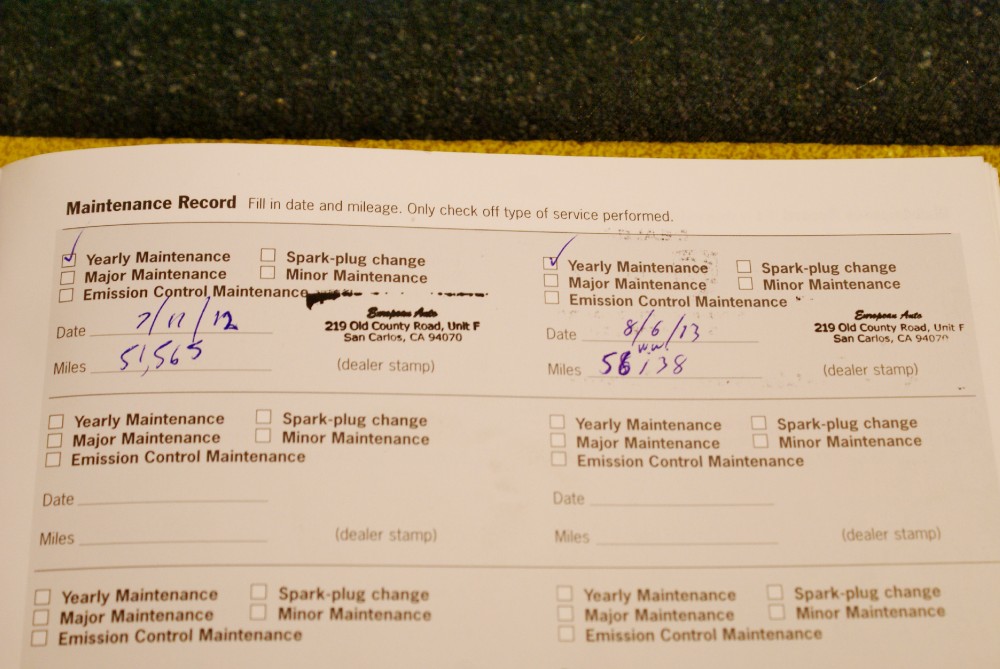 Maintenance Record Fill in date and mileage. Only check off type of service performed.
Yearly Maintenance Spark-plug change
Major Maintenance Minor Maintenance
Emission Control Maintenance
European Auto
219 Old County Road, Unit F
San Carlos, CA 94070
Date 7/11/12
Miles 51,565 (dealer stamp)
Yearly Maintenance Spark-plug change
Major Maintenance Minor Maintenance
Emission Control Maintenance
European Auto
219 Old County Road, Unit F
San Carlos, CA 94070
Date 8/6/13
Miles 56,138 (dealer stamp)
Yearly Maintenance Spark-plug change
Major Maintenance Minor Maintenance
Emission Control Maintenance
Date
Miles (dealer stamp)
Yearly Maintenance Spark-plug change
Major Maintenance Minor Maintenance
Emission Control Maintenance
Date
Miles (dealer stamp)
Yearly Maintenance Spark-plug change
Major Maintenance Minor Maintenance
Emission Control Maintenance
Yearly Maintenance Spark-plug change
Major Maintenance Minor Maintenance
Emission Control Maintenance